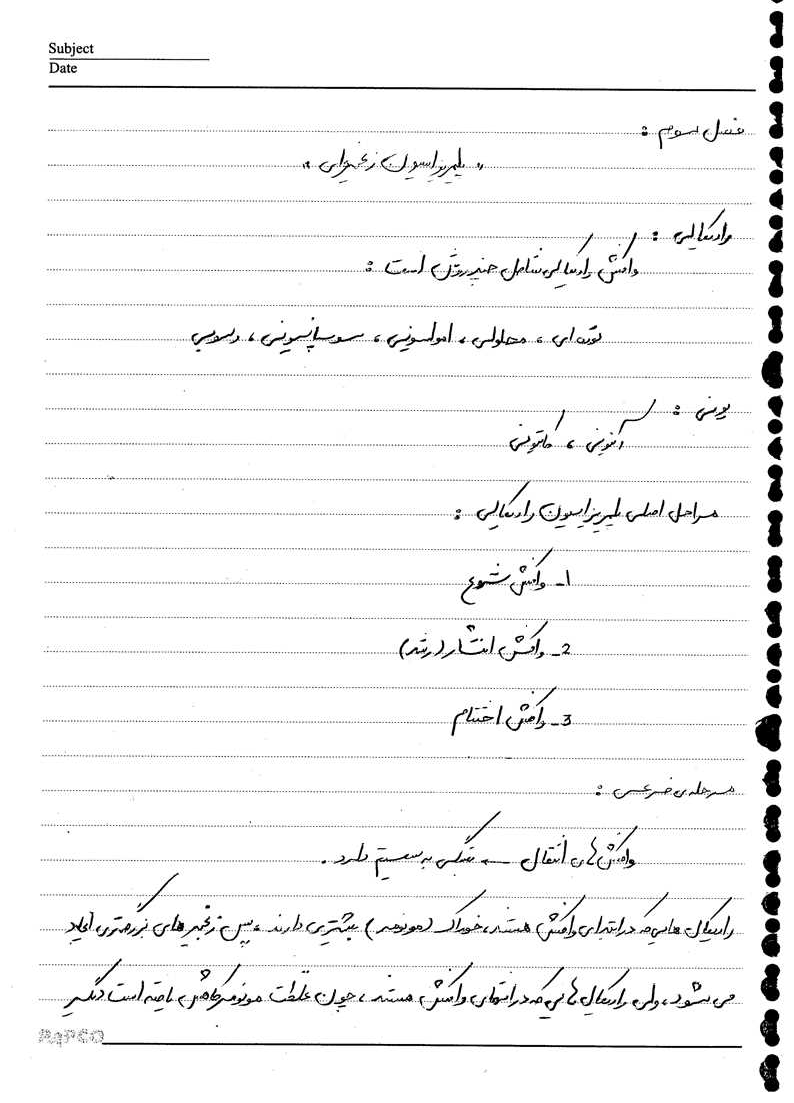 Subject
Date
فصل سوم :
« پلیمریزاسیون زنجیره‌ای »
رادیکالی :
واکنش رادیکالی شامل چند روش است :
توده ای ، محلولی ، امولسیونی ، سوسپانسیونی ، رسوبی
یونی :
آنیونی ، کاتیونی
مراحل اصلی پلیمریزاسیون رادیکالی :
1- واکنش شروع
2- واکنش انتشار (رشد)
3- واکنش اختتام
مرحله ی فرعی :
واکنش های انتقال ← بستگی به سیستم دارد .
رادیکال هایی که در ابتدای واکنش هستند، خوراک (مونومر) بیشتری دارند ، پس زنجیر های بزرگتری ایجاد
می شود، ولی رادیکال هایی که در انتهای واکنش هستند ، چون غلظت مونومر کاهش یافته است دیگر
PAPCO